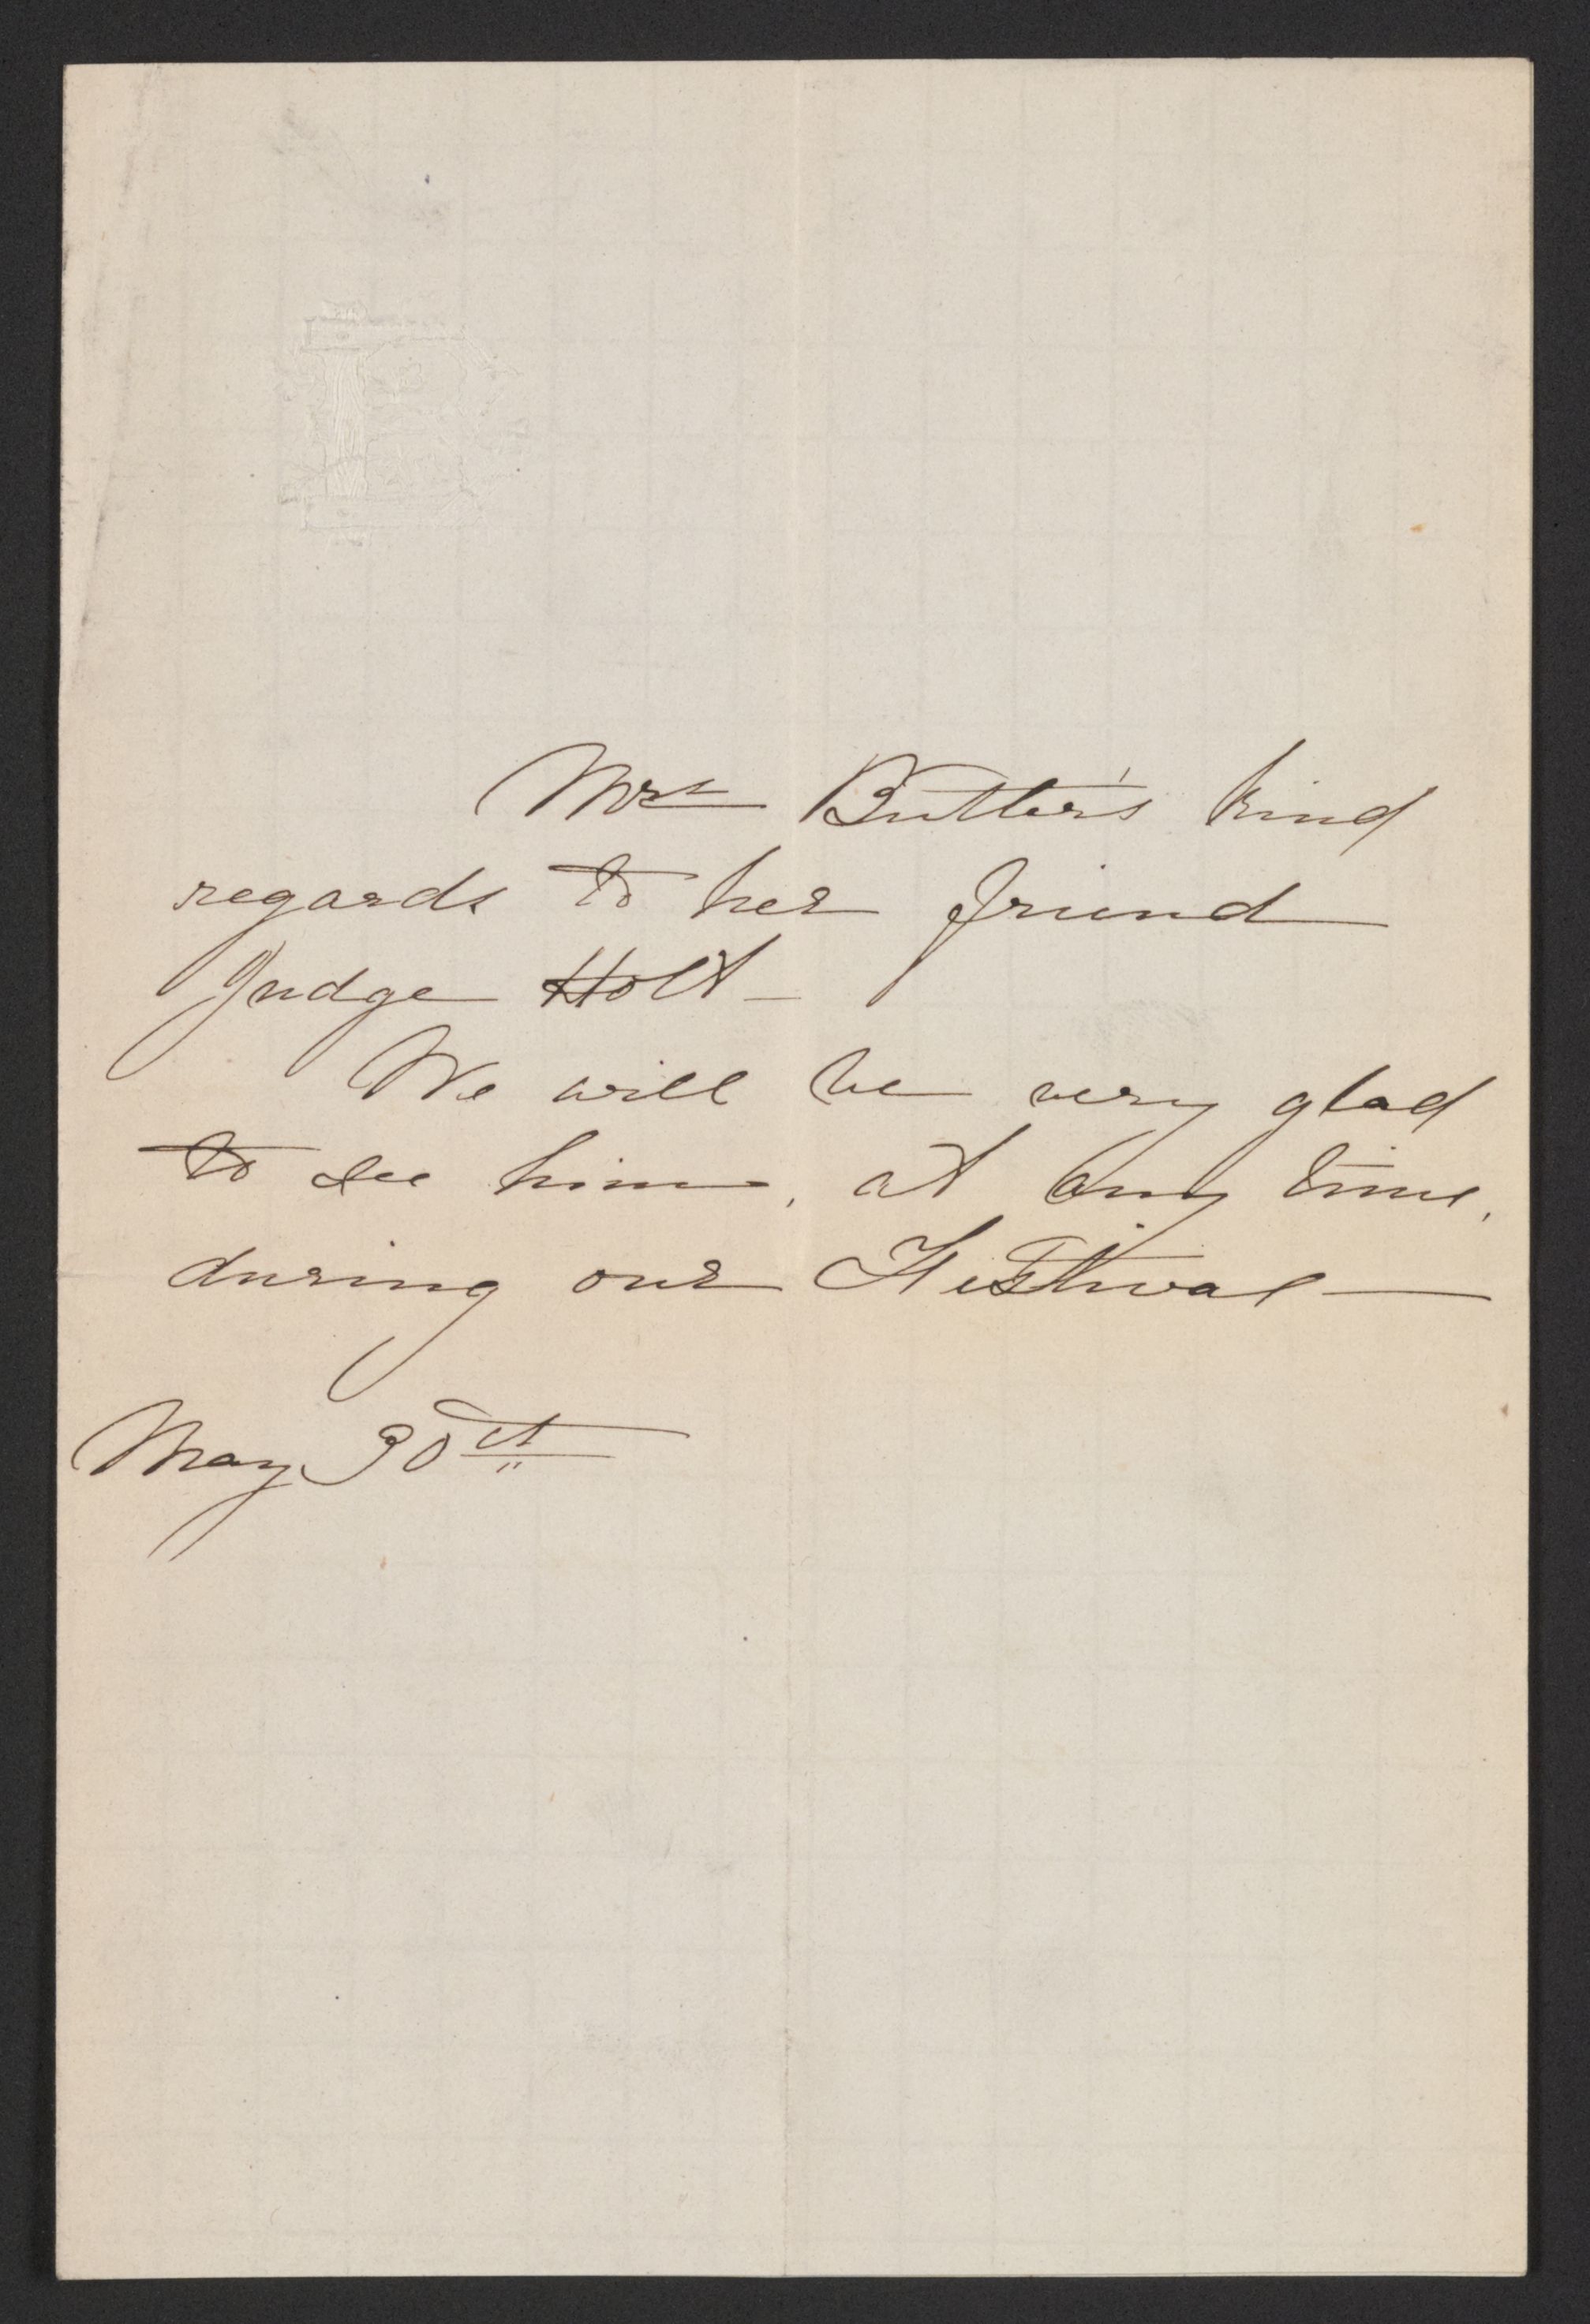 Mrs Butler's kind
regards to her friend
Judge Holt -
We will be very glad
to see him, at any time,
during our Festival —
May 30th